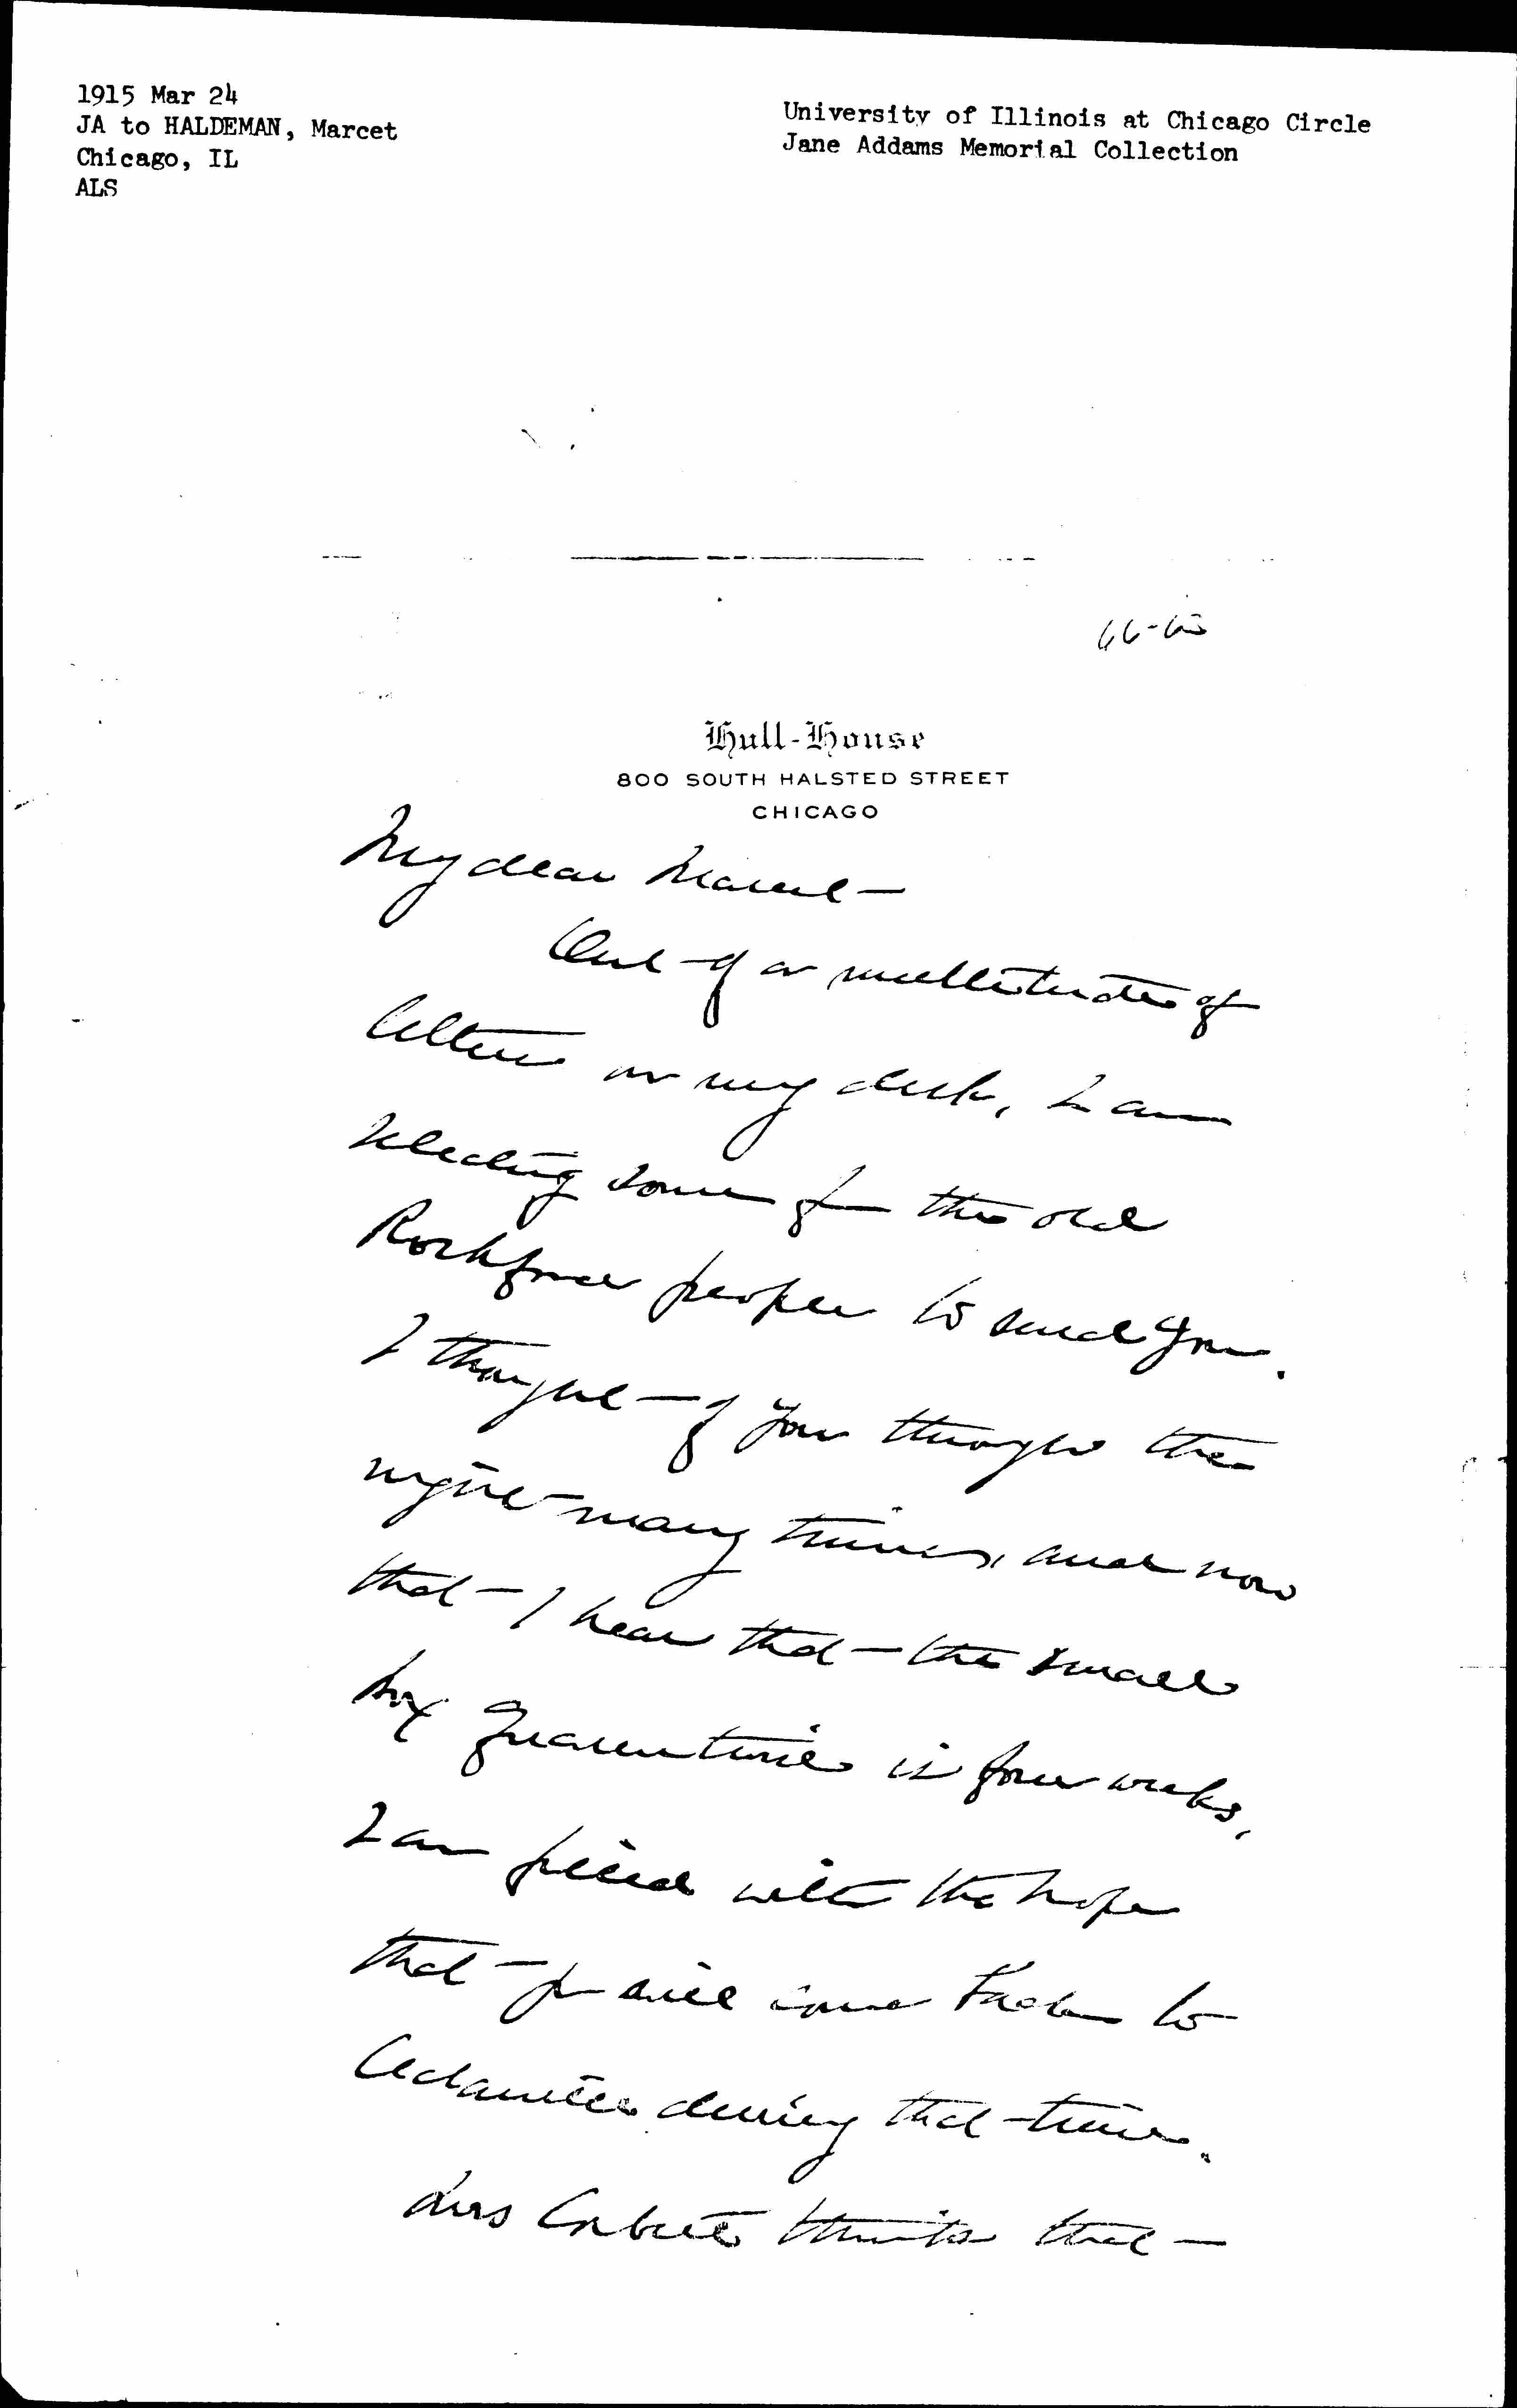 1915 Mar 24
JA to HALDEMAN, Marcet
Chicago, IL
ALS
University of Illinois at Chicago Circle
Jane Addams Memorial Collection
Hull-House
800 SOUTH HALSTED STREET
CHICAGO
My dear Marcet —
Out of a multitude of
letters on my desk, I am
selecting some from the old
Rockford people to send you.
I thought of you through the
night many times, and now
that I hear that the small
pox quarantine is four weeks,
I am filled with the hope
that you will come back to
during that time.
Mrs thinks that